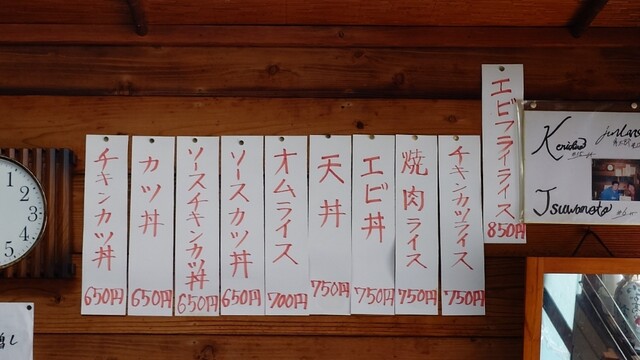 エビフライライス
850円
チキンカツライス
750円
焼肉ライス
750円
エビ丼
750円
天丼
750円
オムライス
700円
ソースカツ丼
650円
ソースチキンカツ丼
650円
カツ丼
650円
チキンカツ丼
650円
1
2
3
4
5
増し
Tsuwamoto